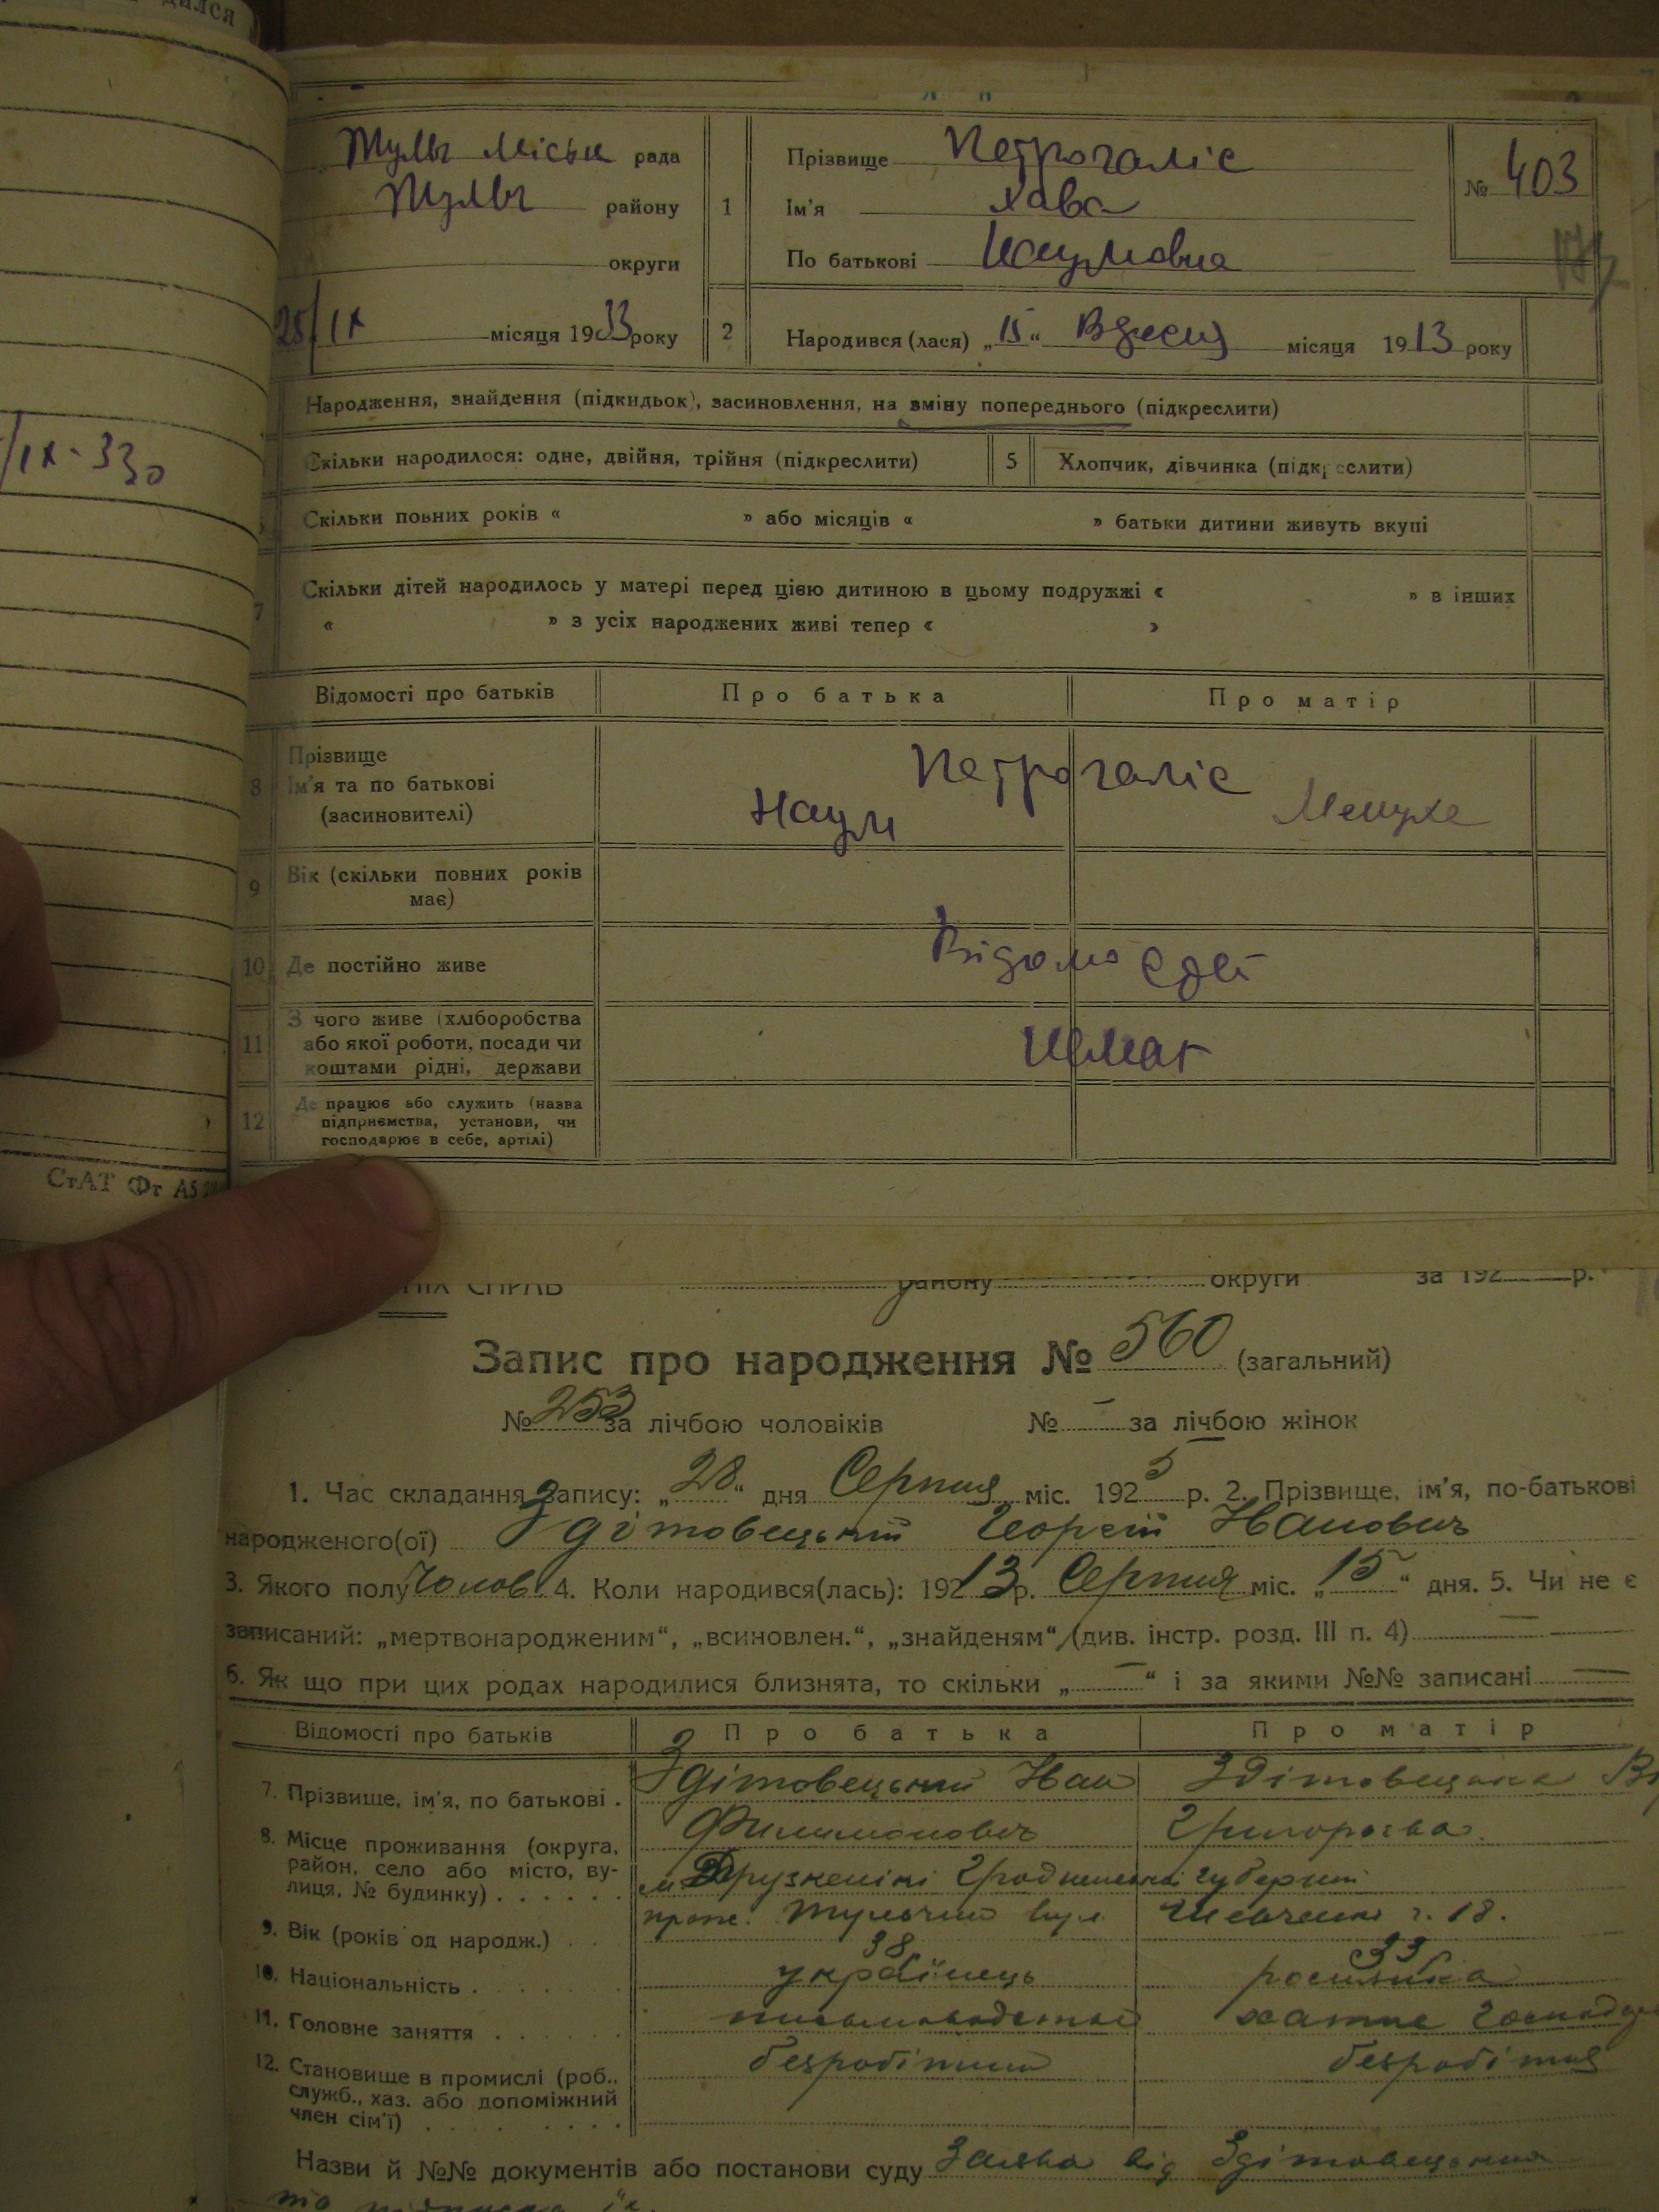 дился
/IX-33о
СтАТ Фт А5
рада
району
округи
25/IX місяця 1933 року
1
Прізвище Петрогаліс
Ім'я Хава
По батькові
№ 403
2
Народився (лася) „15“ місяця 1913 року
Народження, знайдення (підкидьок), засиновлення, на зміну попереднього (підкреслити)
Скільки народилося: одне, двійня, трійня (підкреслити)
5
Хлопчик, дівчинка (підкреслити)
Скільки повних років « » або місяців « » батьки дитини живуть вкупі
7
Скільки дітей народилось у матері перед цією дитиною в цьому подружжі « » в інших
« » з усіх народжених живі тепер « »
Відомості про батьків
Про батька
Про матір
8
Прізвище
Ім'я та по батькові
(засиновителі)
Петрогаліс
Наум
Менухе
9
Вік (скільки повних років
має)
10
Де постійно живе
11
З чого живе (хліборобства
або якої роботи, посади чи
коштами рідні, держави
12
Де працює або служить (назва
підприємства, установи, чи
господарює в себе, артілі)
району округи за 192 р.
Запис про народження № 560 (загальний)
№ 253 за лічбою чоловіків № – за лічбою жінок
1. Час складання запису: „28“ дня Серпня міс. 1925 р. 2. Прізвище, ім'я, по-батькові
народженого(ої) Здітовецький Георгій Іванович
3. Якого полу Чолов. 4. Коли народився(лась): 19213 р. Серпня міс. „15“ дня. 5. Чи не є
записаний: „мертвонародженим“, „всиновлен.“, „знайденям“ (див. інстр. розд. III п. 4)
6. Як що при цих родах народилися близнята, то скільки „–“ і за якими №№ записані –
Відомості про батьків
Про батька
Про матір
7. Прізвище, ім'я, по батькові .
Здітовецький Іван
Здітовецька
Филимонович
8. Місце проживання (округа,
район, село або місто, ву-
лиця, № будинку) . . . . . .
м. Друзкенікі Гродненської губернії
прож. Тульчин вул. Шевченка ч. 18.
9. Вік (років од народж.) . .
38
33
10. Національність . . . . .
українець
росіянка
11. Головне заняття . . . . . .
хатнє
12. Становище в промислі (роб.,
служб., хаз. або допоміжний
член сім'ї) . . . . . . .
безробітний
безробітня
Назви й №№ документів або постанови суду Заява від